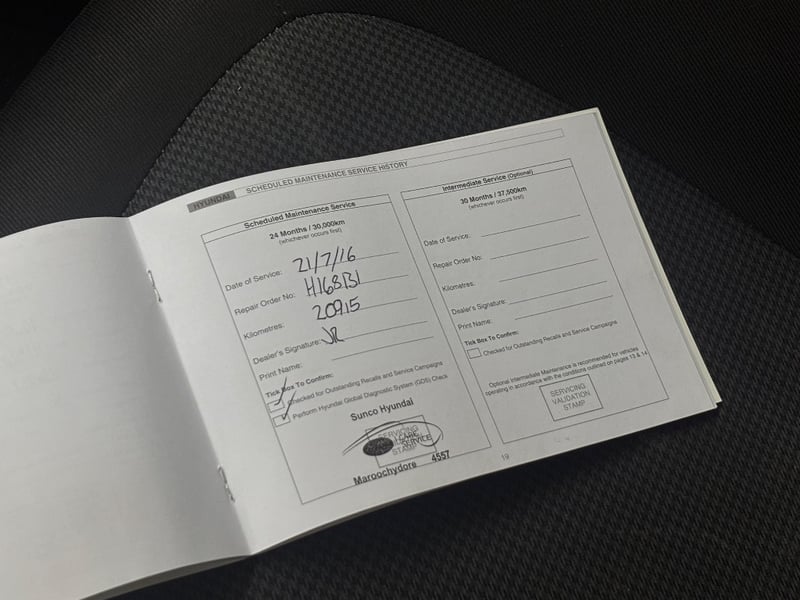 HYUNDAI SCHEDULED MAINTENANCE SERVICE HISTORY
Scheduled Maintenance Service
24 Months / 30,000km
(whichever occurs first)
Date of Service: 21/7/16
Repair Order No: H168131
Kilometres: 20915
Dealer's Signature: JR
Print Name:
Tick Box To Confirm:
Checked for Outstanding Recalls and Service Campaigns
Perform Hyundai Global Diagnostic System (GDS) Check
Sunco Hyundai
SERVICING
CARE
SERVICE
STAMP
Maroochydore 4557
Intermediate Service (Optional)
30 Months / 37,500km
(whichever occurs first)
Date of Service:
Repair Order No:
Kilometres:
Dealer's Signature:
Print Name:
Tick Box To Confirm:
Checked for Outstanding Recalls and Service Campaigns
Optional Intermediate Maintenance is recommended for vehicles
operating in accordance with the conditions outlined on pages 13 & 14
SERVICING
VALIDATION
STAMP
19